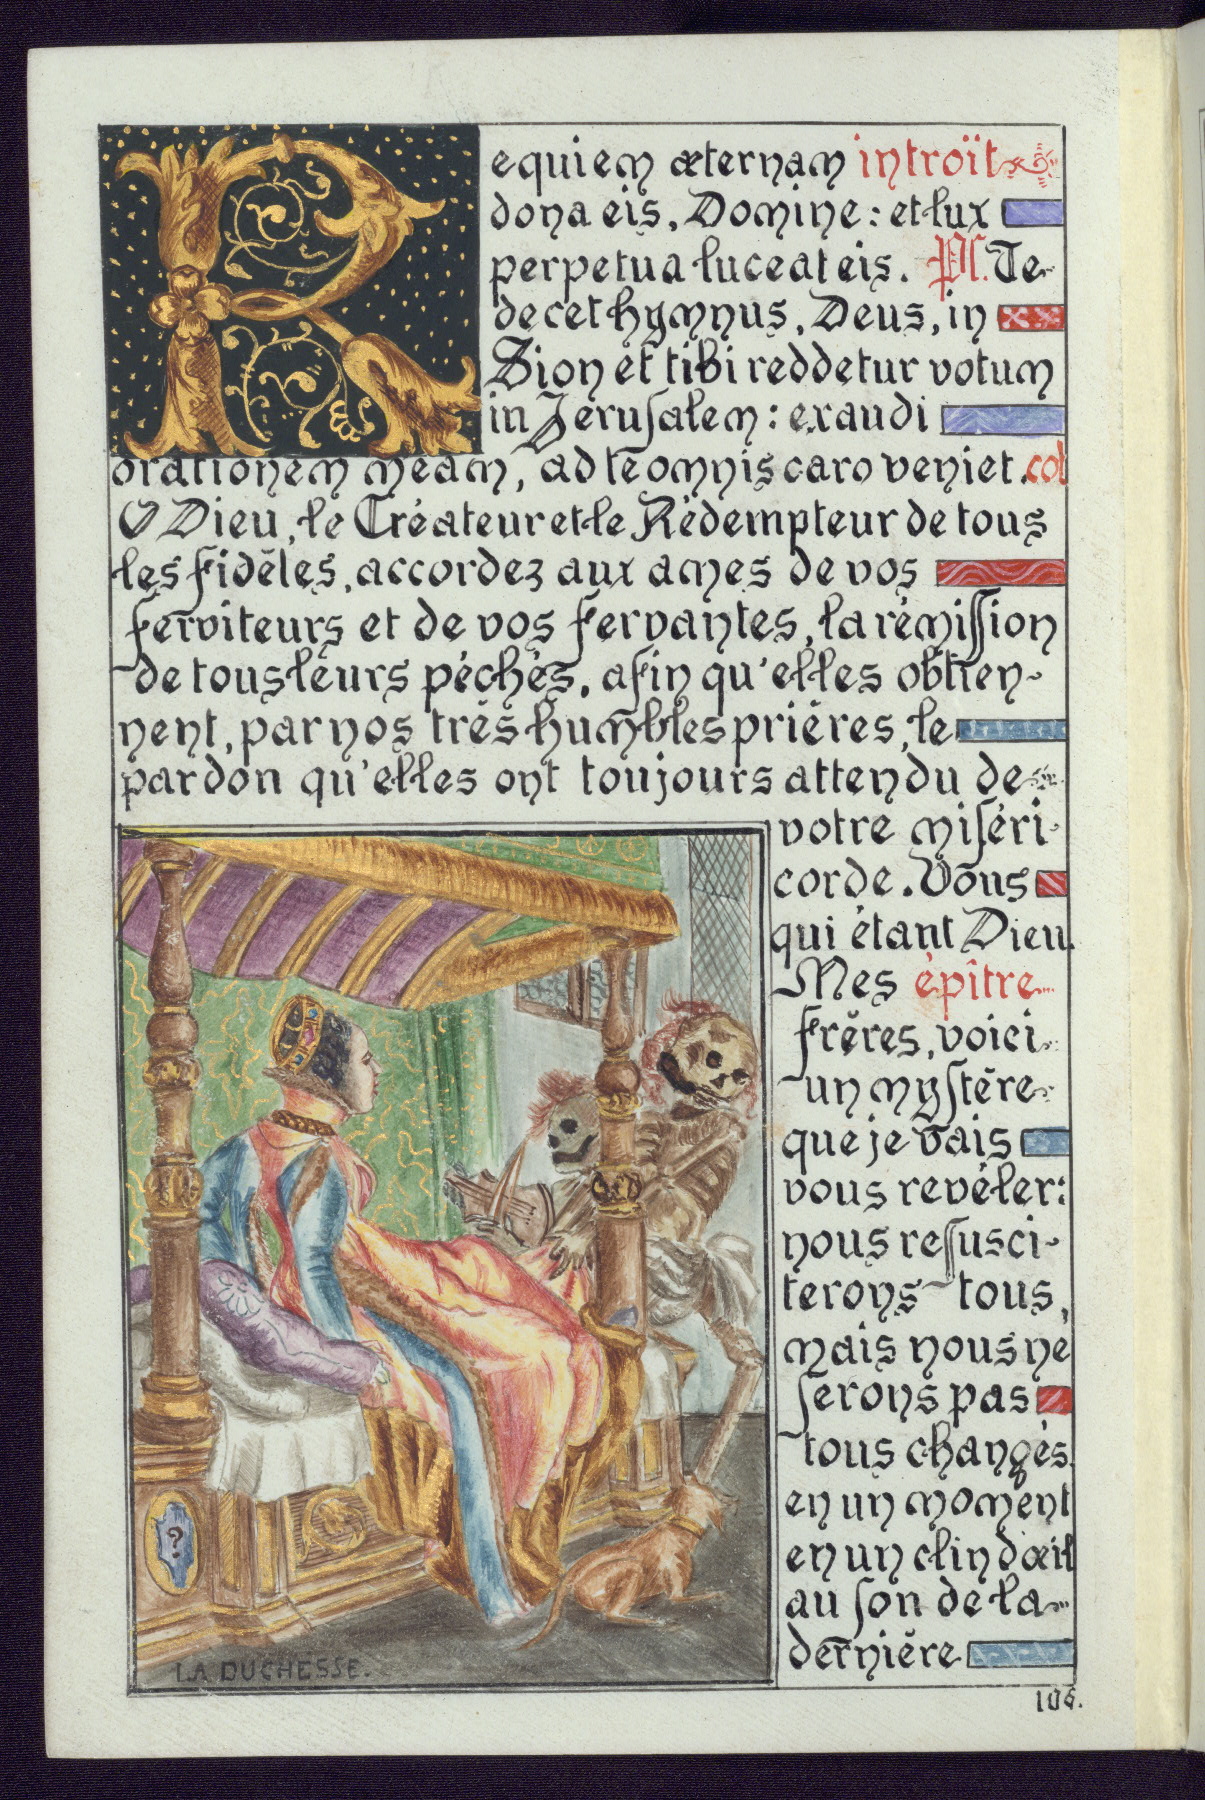 Requiem æternam introït
dona eis, Domine: et lux
perpetua luceat eis. Ps. Te
decet hymnus, Deus, in
Sion et tibi reddetur votum
in Jeruſalem: exaudi
orationem meam, ad te omnis caro veniet. col
O Dieu, le Créateur et le Rédempteur de tous
les fidèles, accordez aux ames de vos
ſerviteurs et de vos ſervantes, la rémiſſion
de tous leurs péchés, afin qu'elles obtien-
nent, par nos très humbles prières, le
pardon qu'elles ont toujours attendu de
votre miſéri-
corde. Vous
qui étant Dieu
Mes épître
frères, voici
un myſtère
que je vais
vous revéler:
nous reſusci-
terons tous,
mais nous ne
ſerons pas
tous changés
en un moment
en un clin d'œil
au ſon de la
dernière
?
LA DUCHESSE.
106.